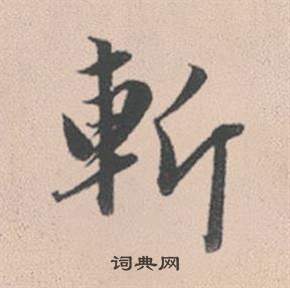 斬
词典网